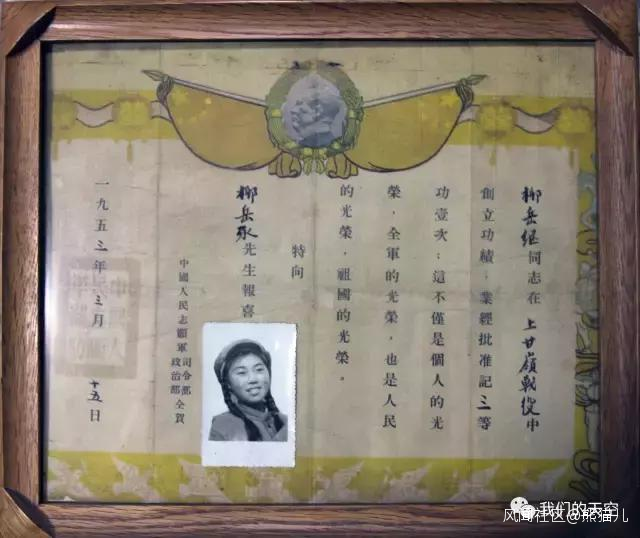 柳岳继同志在上甘嶺戰役中
創立功績，業經批准記三等
功壹次；這不僅是個人的光
榮，全軍的光榮，也是人民
的光榮，祖國的光榮。
特向
柳岳先生報喜
中國人民志願軍司令部
政治部仝賀
一九五三年三月十五日
我们的天空
风闻社区@熊猫儿